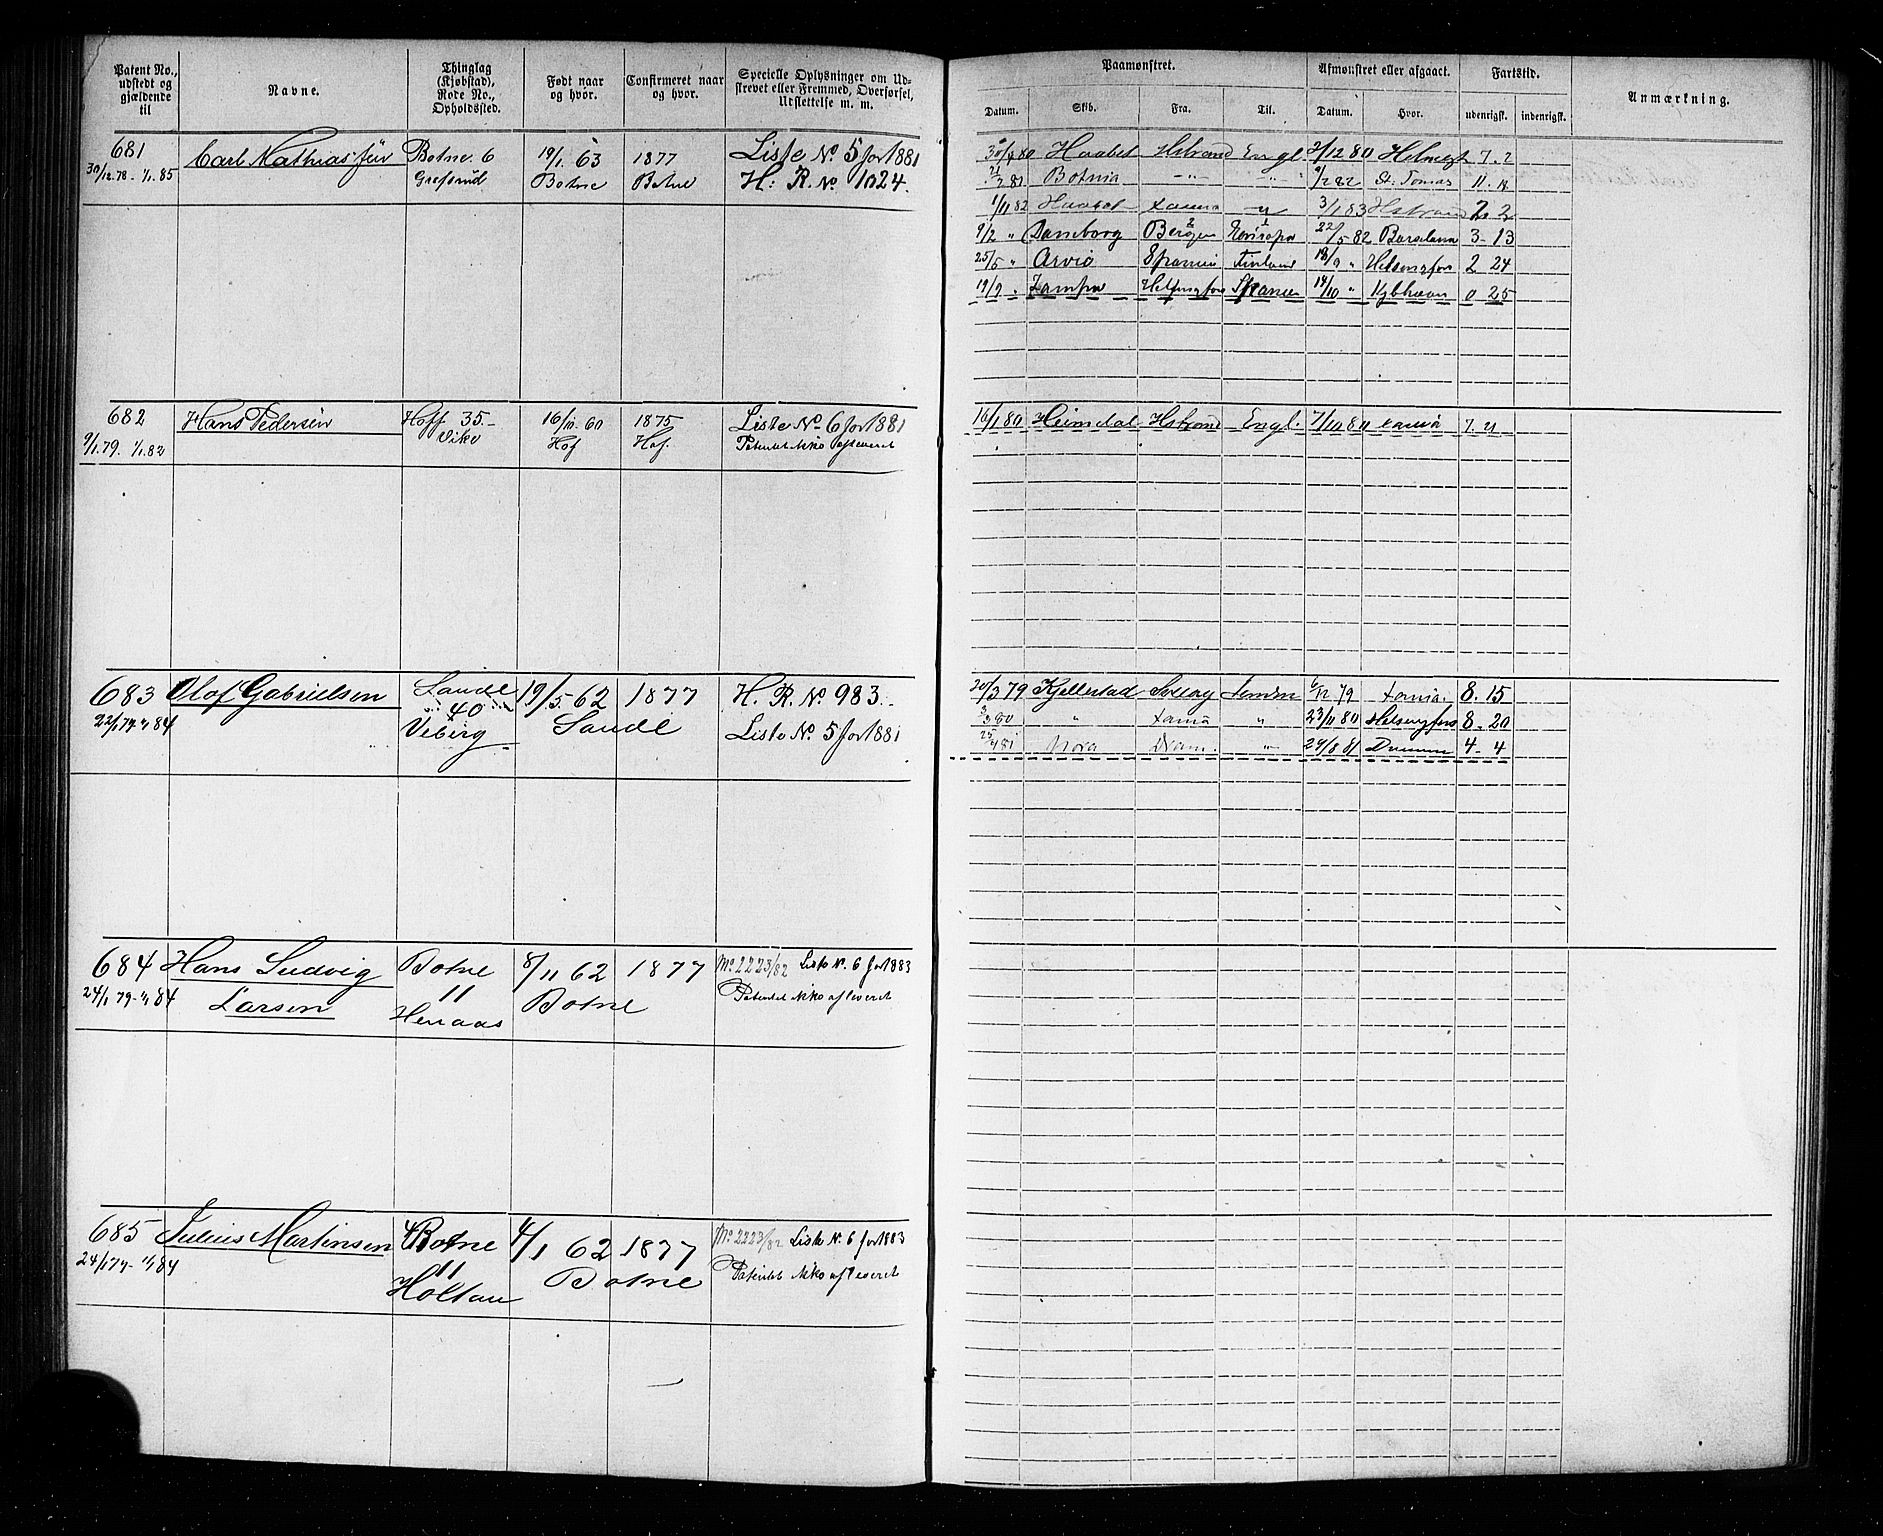 Patent No., udstedt og gjældende til
Navne.
Thinglag (Kjøbstad), Rode No., Opholdssted.
Født naar og hvor.
Confirmeret naar og hvor.
Specielle Oplysninger om Udskrevet eller Fremmed, Overførsel, Udslettelse m. m.
Paamønstret.
Datum. Skib. Fra. Til.
Afmønstret eller afgaaet.
Datum. Hvor.
Fartstid.
udenrigsk. indenrigsk.
Anmærkning.
681 Carl Mathias Botne 6 19/1 63 1877 Liste No 5 for 1881
30/12 78 - 1/1 85 Grefsrud Botne Botne H: R. No 1024.
80 Haabet Hstrand Engl 2/12 80 7. 2
81 Botnia -"- " 9/2 82 St. Tomas 11.
1/11 82 Haabet 3/1 83 Hstrand 2. 2
9/2 " Daneborg Bergen Europa 22/5 82 Barselana 3 - 13
25/5 " Arvio Spanien Finland 18/9 " Helsingfors 2 24
19/9 " Helsingfors Spanien 14/10 " Kjbhavn 0 25
682 Hans Pedersen Hoff 35.- 16/10 60 1875 Liste No 6 for 1881
9/1 79. 1/1 82 Hof Hof. Patentet ikke afleveret
16/1 80 Heimdal Hstrand Engl. 7/10 80 7. 21
683 Olof Gabrielsen Sande 19/5 62 1877 H. R. No 983.
22/1 79 - 1/1 84 40 Sande
Veberg Liste No 5 for 1881
20/3 79 Kjellestad 6/12 79 8. 15
3/3 80 " " 23/11 80 Helsingfors 8 - 20
25/4 81 Nora Dram. -"- 29/8 81 Drammen 4 - 4
684 Hans Ludvig Botne 8/11 62 1877 No 2223/82 Liste No. 6 for 1883
24/1 79 - 1/1 84 Larsen 11 Botne Patentet ikke afleveret
Henaas
685 Julius Martinsen Botne 4/1 62 1877 No 2223/82 Liste No. 6 for 1883
24/1 79 - 1/1 84 11 Botne Patentet ikke afleveret
Holtan